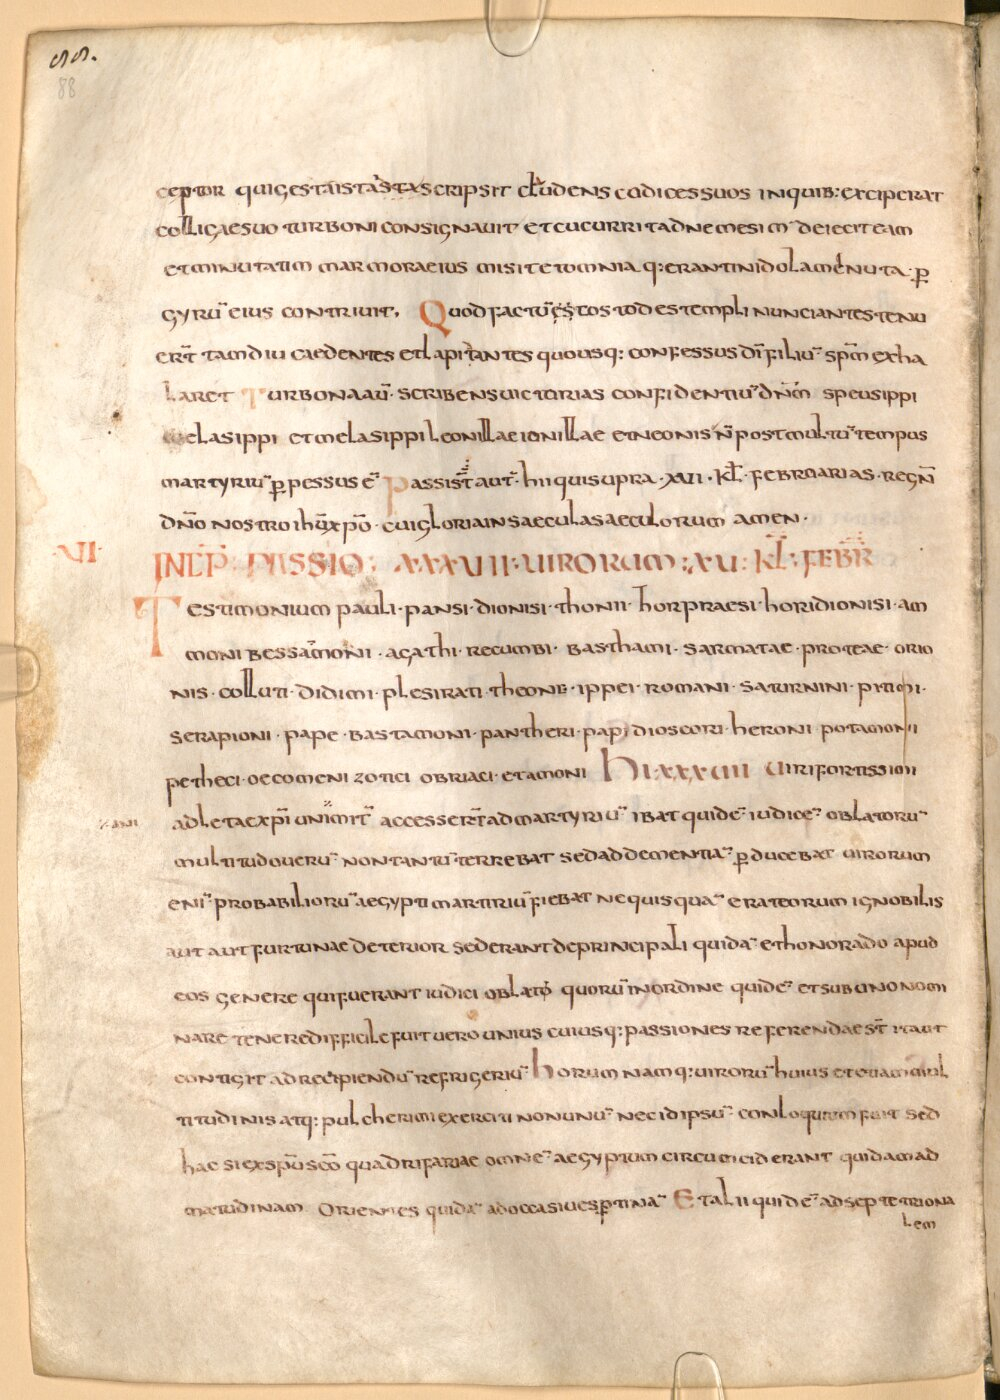 88.
88
ceptor qui gesta ista sta scripsit cludens codices suos in quib: exciperat
colligae suo turboni consignavit et cucurrit ad nemesim deiecit eam
et minutatim marmora eius misit et omnia q: erant in idola menuta p
gyrū eius contrivit. Quod factū es tos todes templi nunciantes tenu
erт̄ tamdiu caedentes et lapitantes quousq: confessus dī filiū spm̄ exha
laret Turbona aū scribens victorias confidentiū dn̄m speusippi
elasippi et melasippi leonillae ionillae et neonis n̄ post multū tempus
martyriū ppessus ē Passi st̄ aut hii qui supra ·XVI· kl̄ februarias regn̄
dn̄o nostro ihū xpō cui gloria in saecula saeculorum amen·
·VI· INCP PASSIO XXXVII VIRORUM XV KL FEBR̄
Testimonium pauli· pansi· dionisi· thonii· horpraesi· horidionisi· am
moni bessamoni · agathi· recumbi· basthami· sarmatae· proteae· orio
nis· colluti· didimi· plesirati· theone· ippei· romani· saturnini· pitimi·
serapioni· pape· bastamoni· pantheri· papi dioscori· heroni potamonii
petheci· oecomeni zotici obriaci· et amoni Hi xxxvii viri fortissimi
adletae xp̄i unīmit̄ accesserт̄ ad martyriū ibat quidē iudicē oblatorū
multitudo verū non tantū terrebat sed ad dementiā pducebat virorum
enī probabiliorū aegypti martiriū fiebat nequisquā erat eorum ignobilis
aut aut furtunae deterior sed erant de principali quidā et honorado apud
eos genere qui fuerant iudici oblato quorū in ordine quidē et sub uno nomi
nare tenere difficile fuit vero unius cuiusq: passiones referendae st̄ itaut
contigit ad recipiendū refrigeriū Horum namq: virorū huius et ovam mul
titudinis atq: pulcherimi exerciti non unū nec id ipsū conloquium fuit sed
hac si ex spū scō quadrifariae omnē aegyptum circumciderant quidam ad
matudinam Orientes quidā ad occasi vespertinā Et alii quidē ad septetriona
lem